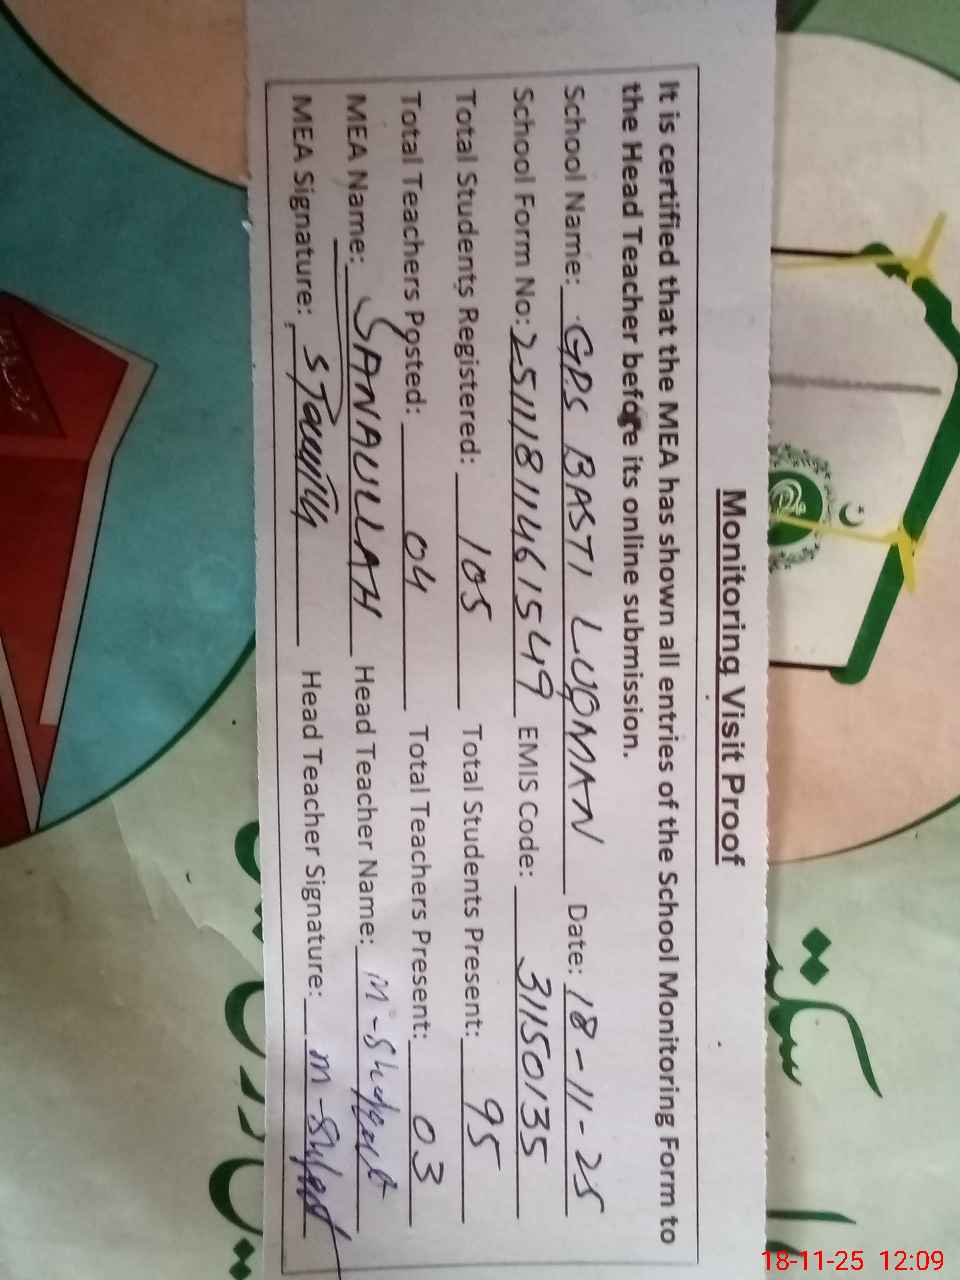 Monitoring Visit Proof
It is certified that the MEA has shown all entries of the School Monitoring Form to
the Head Teacher before its online submission.
School Name: GPS BASTI LUQMAN Date: 18-11-25
School Form No: 2511181146 1549 EMIS Code: 31150135
Total Students Registered: 105 Total Students Present: 95
Total Teachers Posted: 04 Total Teachers Present: 03
MEA Name: SANAULLAH Head Teacher Name: M-Shafqat
MEA Signature: Head Teacher Signature:
18-11-25 12:09